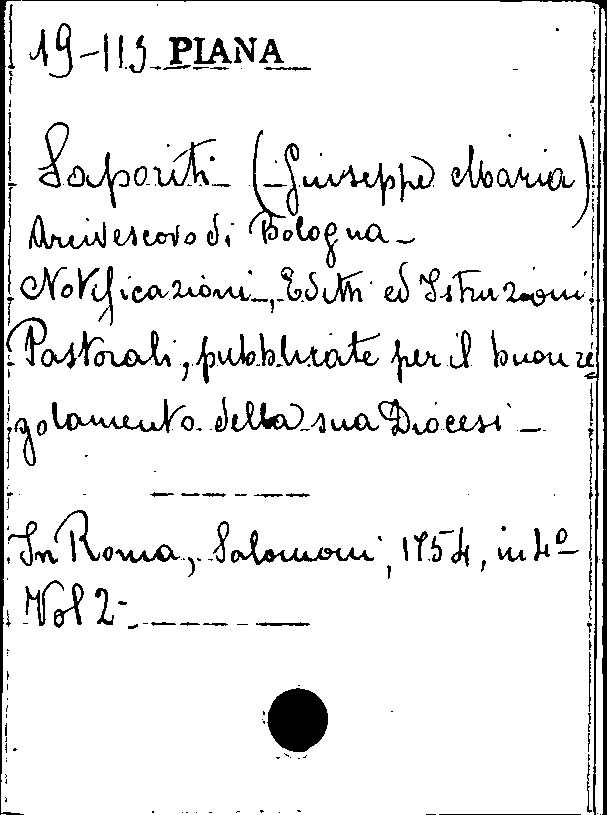 19-113 PIANA
Saporiti (Giuseppe Maria)
Arcivescovo di Bologna -
Notificazioni, Editti ed Istruzioni
Pastorali, pubblicate per il buon re
golamento della sua Diocesi -
In Roma, Salomoni, 1754, in 4º
Vol 2 -